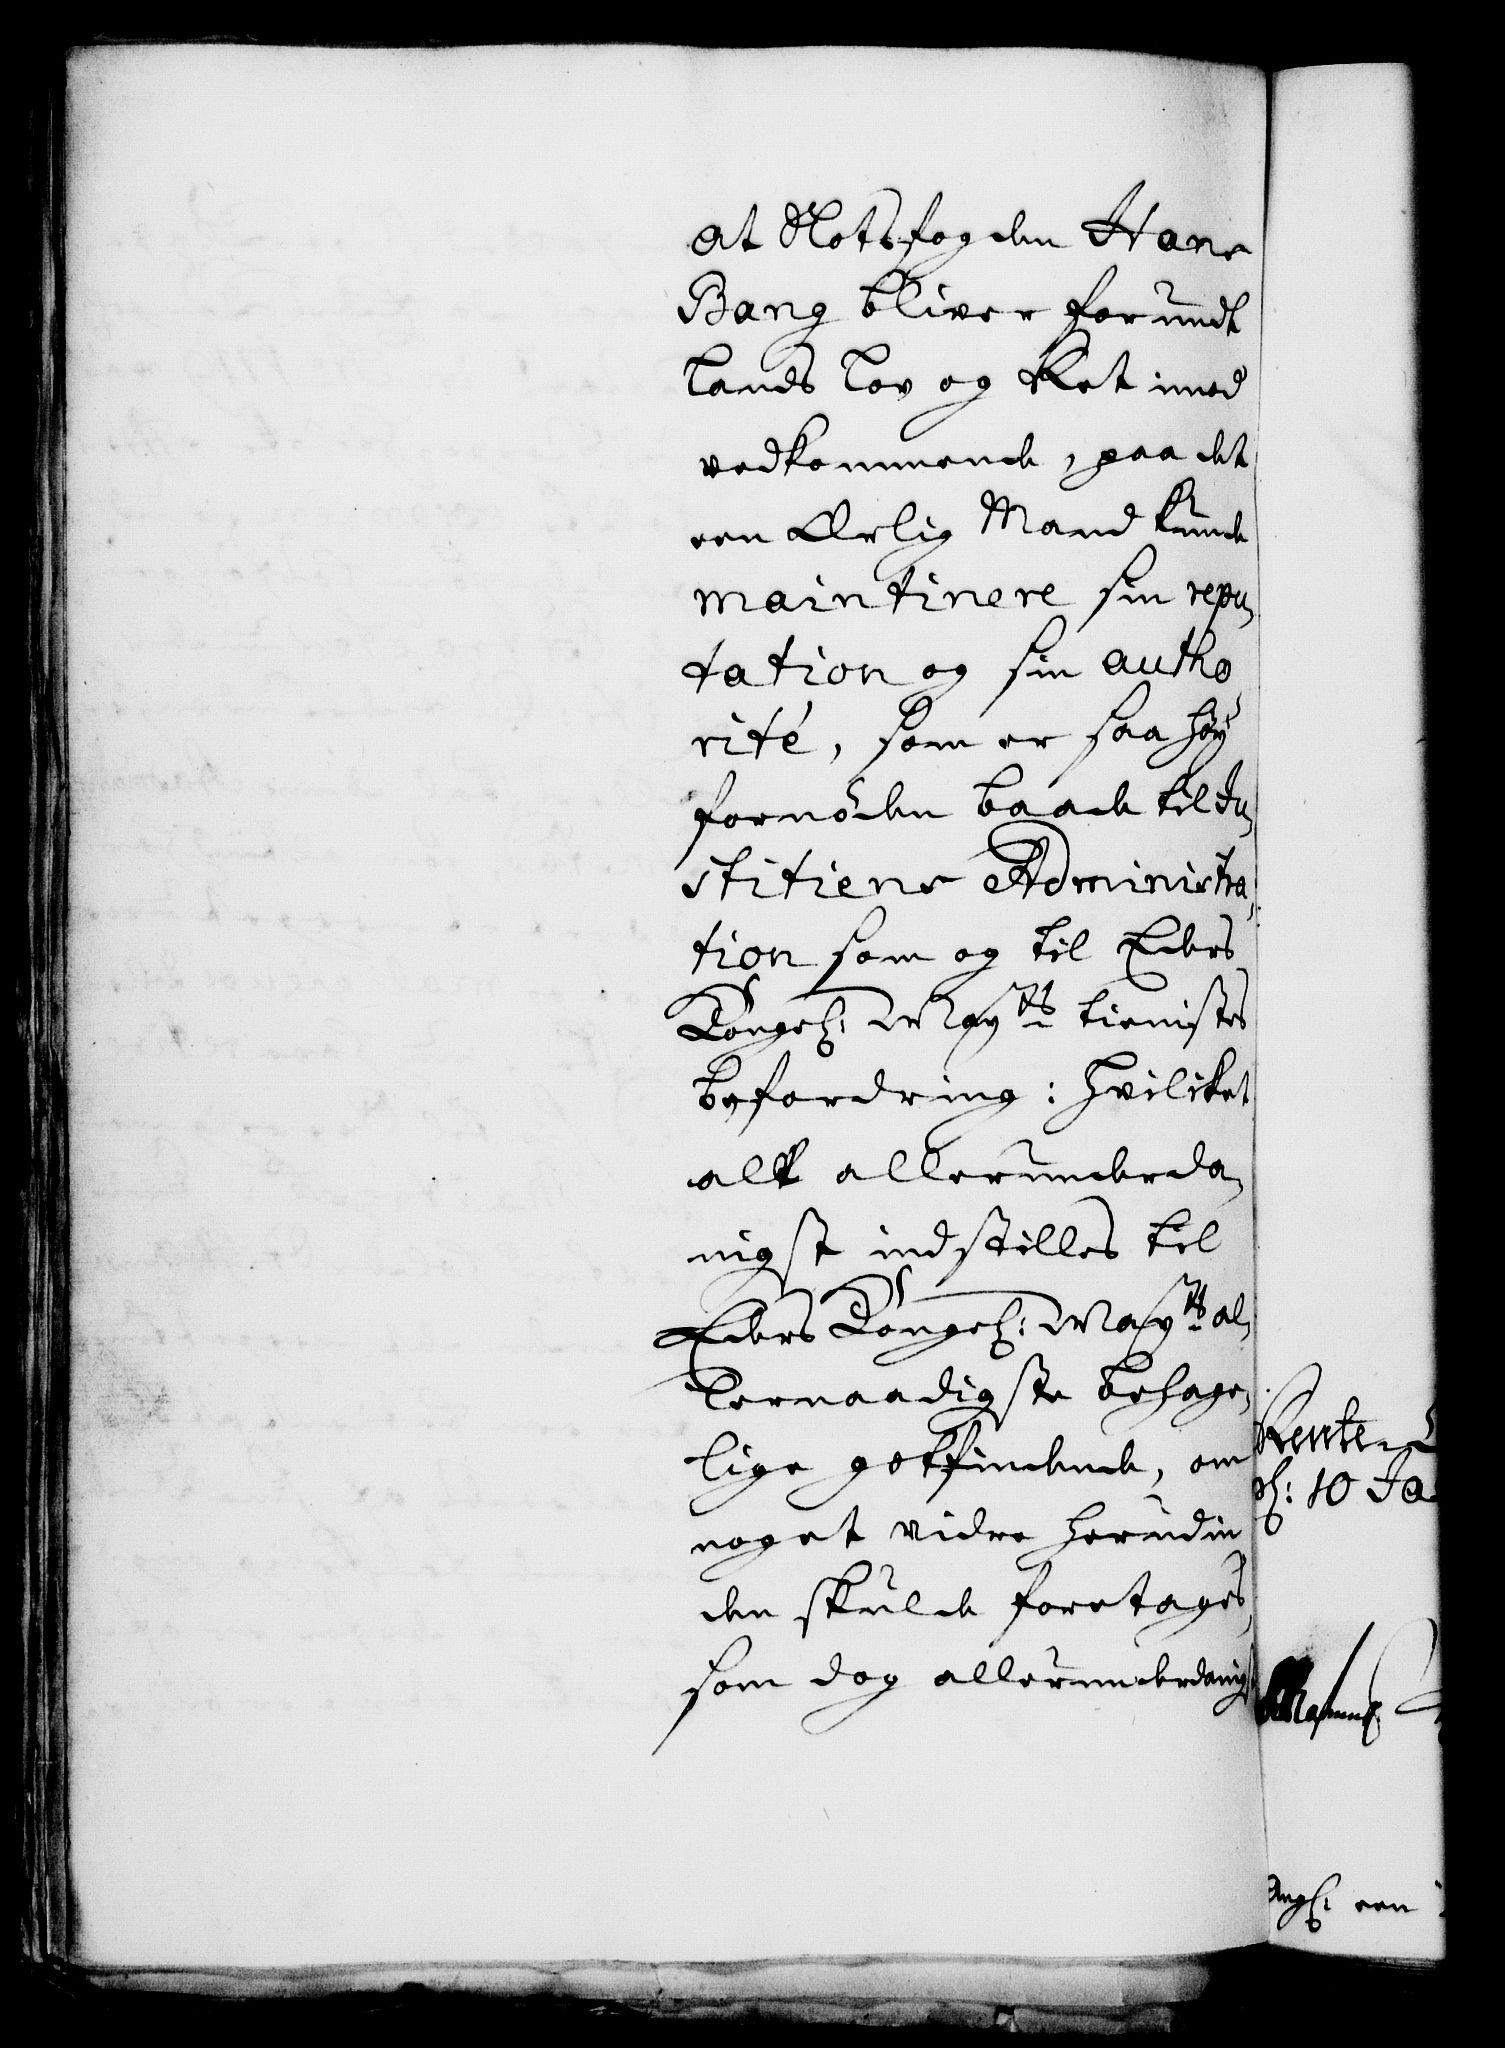 at Slotsfogden Hans
Bang bliver forundt
Lands Lov og Ret imod
vedkommende, paa det
een Ærlig Mand kunde
maintinere sin repu-
tation og sin autho
rité, som er saa høy
fornøden baade til Ju-
stitiens Administra-
tion som og til Eders
Kongel: May:ts tienistes
befordring: hvilket
alt allerunderda-
nigst indstilles til
Eders Kongel: May:ts al-
lernaadigste behage-
lige gotfindende, om
noget vidre herudin
den skulde foretages,
som dog allerunderdanigst
Rente-
d: 10 Ja
angl: een